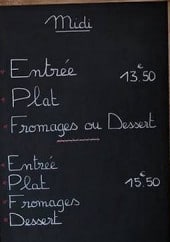 Midi
Entrée
13.50 €
Plat
Fromages ou Dessert
Entrée
Plat 15.50 €
Fromages
Dessert